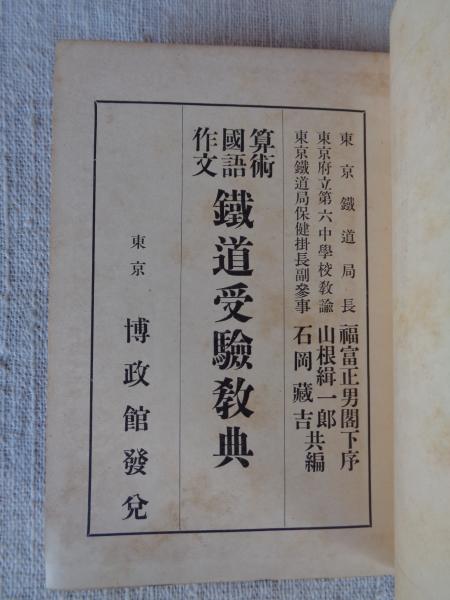 東京鐵道局長 福富正男閣下序
東京府立第六中學校敎諭 山根緝一郎
東京鐵道局保健掛長副參事 石岡藏吉 共編
算術
國語
作文
鐵道受驗敎典
東京 博政館發兌